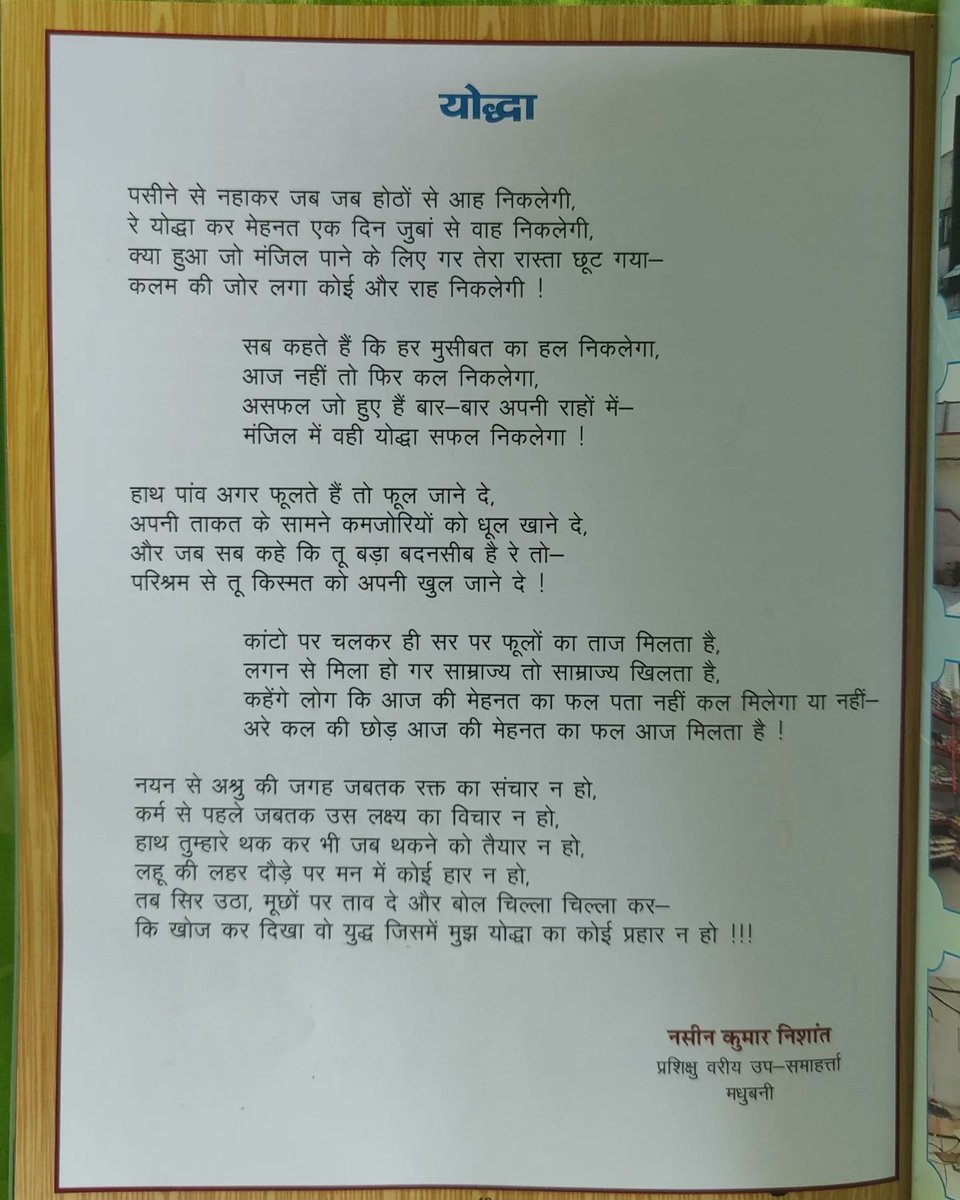 योद्धा
पसीने से नहाकर जब जब होठों से आह निकलेगी,
रे योद्धा कर मेहनत एक दिन जुबां से वाह निकलेगी,
क्या हुआ जो मंजिल पाने के लिए गर तेरा रास्ता छूट गया–
कलम की जोर लगा कोई और राह निकलेगी !
सब कहते हैं कि हर मुसीबत का हल निकलेगा,
आज नहीं तो फिर कल निकलेगा,
असफल जो हुए हैं बार–बार अपनी राहों में–
मंजिल में वही योद्धा सफल निकलेगा !
हाथ पांव अगर फूलते हैं तो फूल जाने दे,
अपनी ताकत के सामने कमजोरियों को धूल खाने दे,
और जब सब कहे कि तू बड़ा बदनसीब है रे तो–
परिश्रम से तू किस्मत को अपनी खुल जाने दे !
कांटो पर चलकर ही सर पर फूलों का ताज मिलता है,
लगन से मिला हो गर साम्राज्य तो साम्राज्य खिलता है,
कहेंगे लोग कि आज की मेहनत का फल पता नहीं कल मिलेगा या नहीं–
अरे कल की छोड़ आज की मेहनत का फल आज मिलता है !
नयन से अश्रु की जगह जबतक रक्त का संचार न हो,
कर्म से पहले जबतक उस लक्ष्य का विचार न हो,
हाथ तुम्हारे थक कर भी जब थकने को तैयार न हो,
लहू की लहर दौड़े पर मन में कोई हार न हो,
तब सिर उठा, मूछों पर ताव दे और बोल चिल्ला चिल्ला कर–
कि खोज कर दिखा वो युद्ध जिसमें मुझ योद्धा का कोई प्रहार न हो !!!
नसीन कुमार निशांत
प्रशिक्षु वरीय उप–समाहर्त्ता
मधुबनी